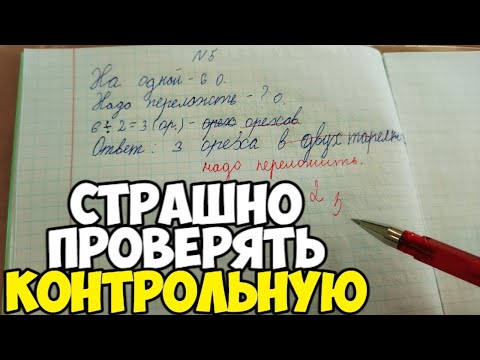 N5
На одной - 6 О.
Надо переложить - ? О.
6 ÷ 2 = 3 (ор.) - орехов
Ответ: 3 ореха в двух
надо переложить.
2
СТРАШНО
ПРОВЕРЯТЬ
КОНТРОЛЬНУЮ